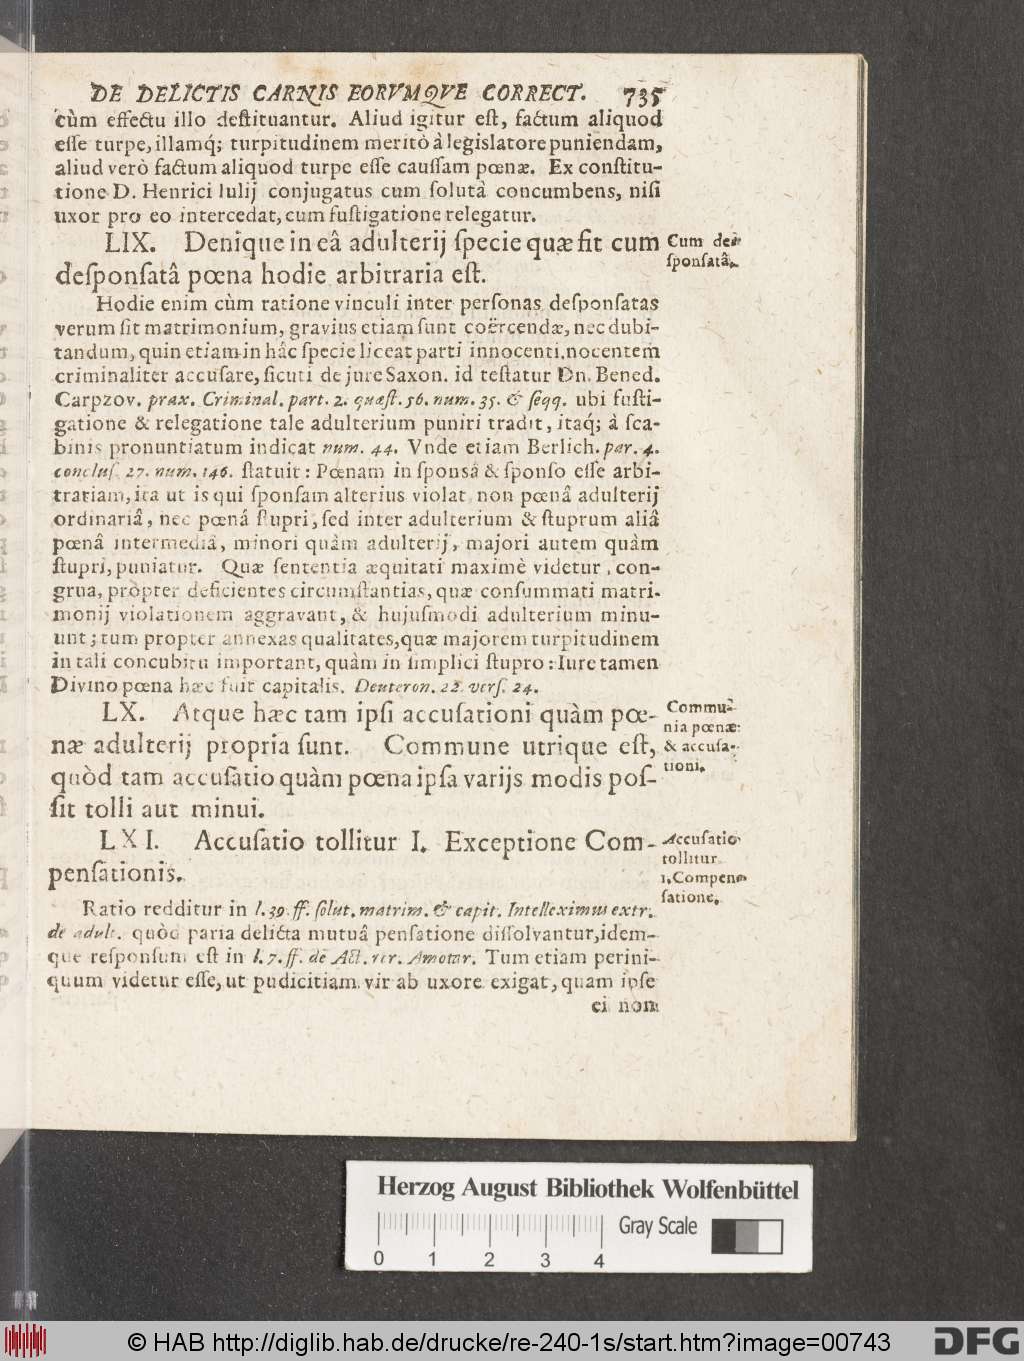 DE DELICTIS CARNIS EORVMQVE CORRECT. 735
cùm effectu illo deſtituantur. Aliud igitur eſt, factum aliquod
eſſe turpe, illamq́; turpitudinem meritò à legislatore puniendam,
aliud verò factum aliquod turpe eſſe cauſſam pœnæ. Ex conſtitu-
tione D. Henrici Iulij conjugatus cum ſolutâ concumbens, niſi
uxor pro eo intercedat, cum fuſtigatione relegatur.
LIX. Denique in eâ adulterij ſpecie quæ fit cum
deſponſatâ pœna hodie arbitraria eſt.
Cum de-
ſponſatâ.
Hodie enim cùm ratione vinculi inter perſonas deſponſatas
verum ſit matrimonium, gravius etiam ſunt coërcendæ, nec dubi-
tandum, quin etiam in hâc ſpecie liceat parti innocenti, nocentem
criminaliter accuſare, ſicuti de jure Saxon. id teſtatur Dn. Bened.
Carpzov. prax. Criminal. part. 2. quæſt. 56. num. 35. & ſeqq. ubi fuſti-
gatione & relegatione tale adulterium puniri tradit, itaq́; â ſca-
binis pronuntiatum indicat num. 44. Vnde etiam Berlich. par. 4.
concluſ. 27. num. 146. ſtatuit: Pœnam in ſponsâ & ſponſo eſſe arbi-
trariam, ita ut is qui ſponſam alterius violat, non pœnâ adulterij
ordinariâ, nec pœnâ ſtupri, ſed inter adulterium & ſtuprum aliâ
pœnâ intermediâ, minori quàm adulterij, majori autem quàm
ſtupri, puniatur. Quæ ſententia æquitati maximè videtur, con-
grua, propter deficientes circumſtantias, quæ conſummati matri-
monij violationem aggravant, & hujuſmodi adulterium minu-
unt; tum propter annexas qualitates, quæ majorem turpitudinem
in tali concubitu important, quàm in ſimplici ſtupro: Iure tamen
Divino pœna hæc fuit capitalis. Deuteron. 22. verſ. 24.
LX. Atque hæc tam ipſi accuſationi quàm pœ-
næ adulterij propria ſunt. Commune utrique eſt,
quòd tam accuſatio quàm pœna ipſa varijs modis poſ-
ſit tolli aut minui.
Commu-
nia pœnæ
& accuſa-
tioni.
LXI. Accuſatio tollitur I. Exceptione Com-
penſationis.
Accuſatio
tollitur
1. Compen-
ſatione.
Ratio redditur in l. 39. ff. ſolut. matrim. & capit. Intelleximus extr.
de adult. quòd paria delicta mutuâ penſatione diſſolvantur, idem-
que reſponſum eſt in l. 7. ff. de Act. rer. Amotar. Tum etiam perini-
quum videtur eſſe, ut pudicitiam vir ab uxore exigat, quam ipſe
ei non
Herzog August Bibliothek Wolfenbüttel
Gray Scale
0 1 2 3 4
© HAB http://diglib.hab.de/drucke/re-240-1s/start.htm?image=00743
DFG